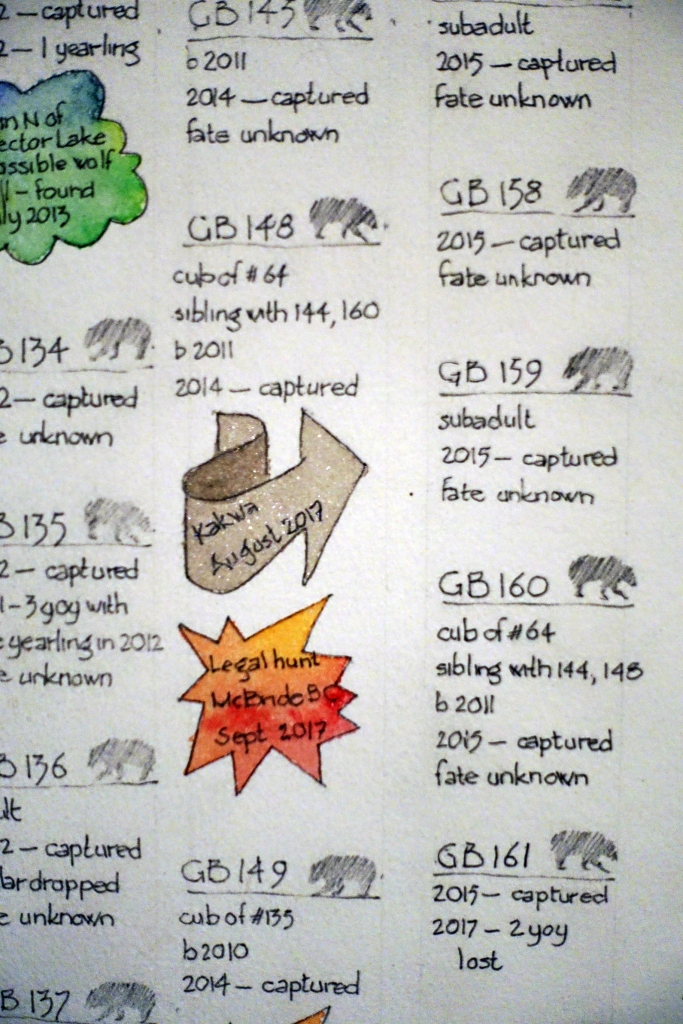 2 – captured
2 – 1 yearling
N of
ector Lake
ossible wolf
– found
ly 2013
B 134
2 – captured
e unknown
B 135
2 – captured
1 – 3 yoy with
e yearling in 2012
e unknown
B 136
ult
2 – captured
lar dropped
e unknown
B 137
GB 145
b 2011
2014 – captured
fate unknown
GB 148
cub of # 64
sibling with 144, 160
b 2011
2014 – captured
Kakwa
August 2017
Legal hunt
McBride BC
Sept 2017
GB 149
cub of #135
b 2010
2014 – captured
subadult
2015 – captured
fate unknown
GB 158
2015 – captured
fate unknown
GB 159
subadult
2015 – captured
fate unknown
GB 160
cub of #64
sibling with 144, 148
b 2011
2015 – captured
fate unknown
GB 161
2015 – captured
2017 – 2 yoy
lost